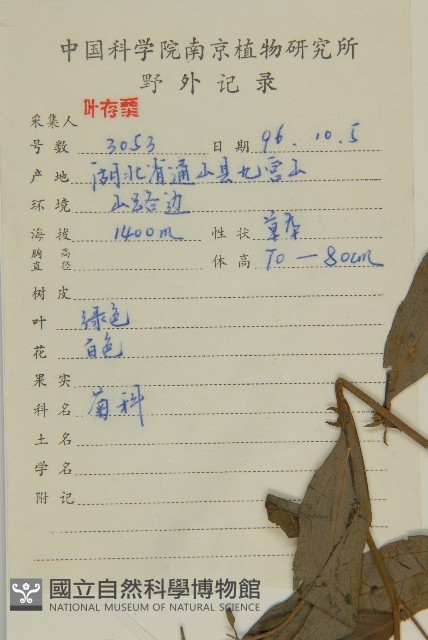 中国科学院南京植物研究所
野外记录
采集人 叶存粟
号数 3053 日期 96.10.5
产地 湖北省通山县九宫山
环境 山路边
海拔 1400m 性状 草本
胸高直径 体高 70—80cm
树皮
叶 绿色
花 白色
果实
科名 菊科
土名
学名
附记
國立自然科學博物館
NATIONAL MUSEUM OF NATURAL SCIENCE